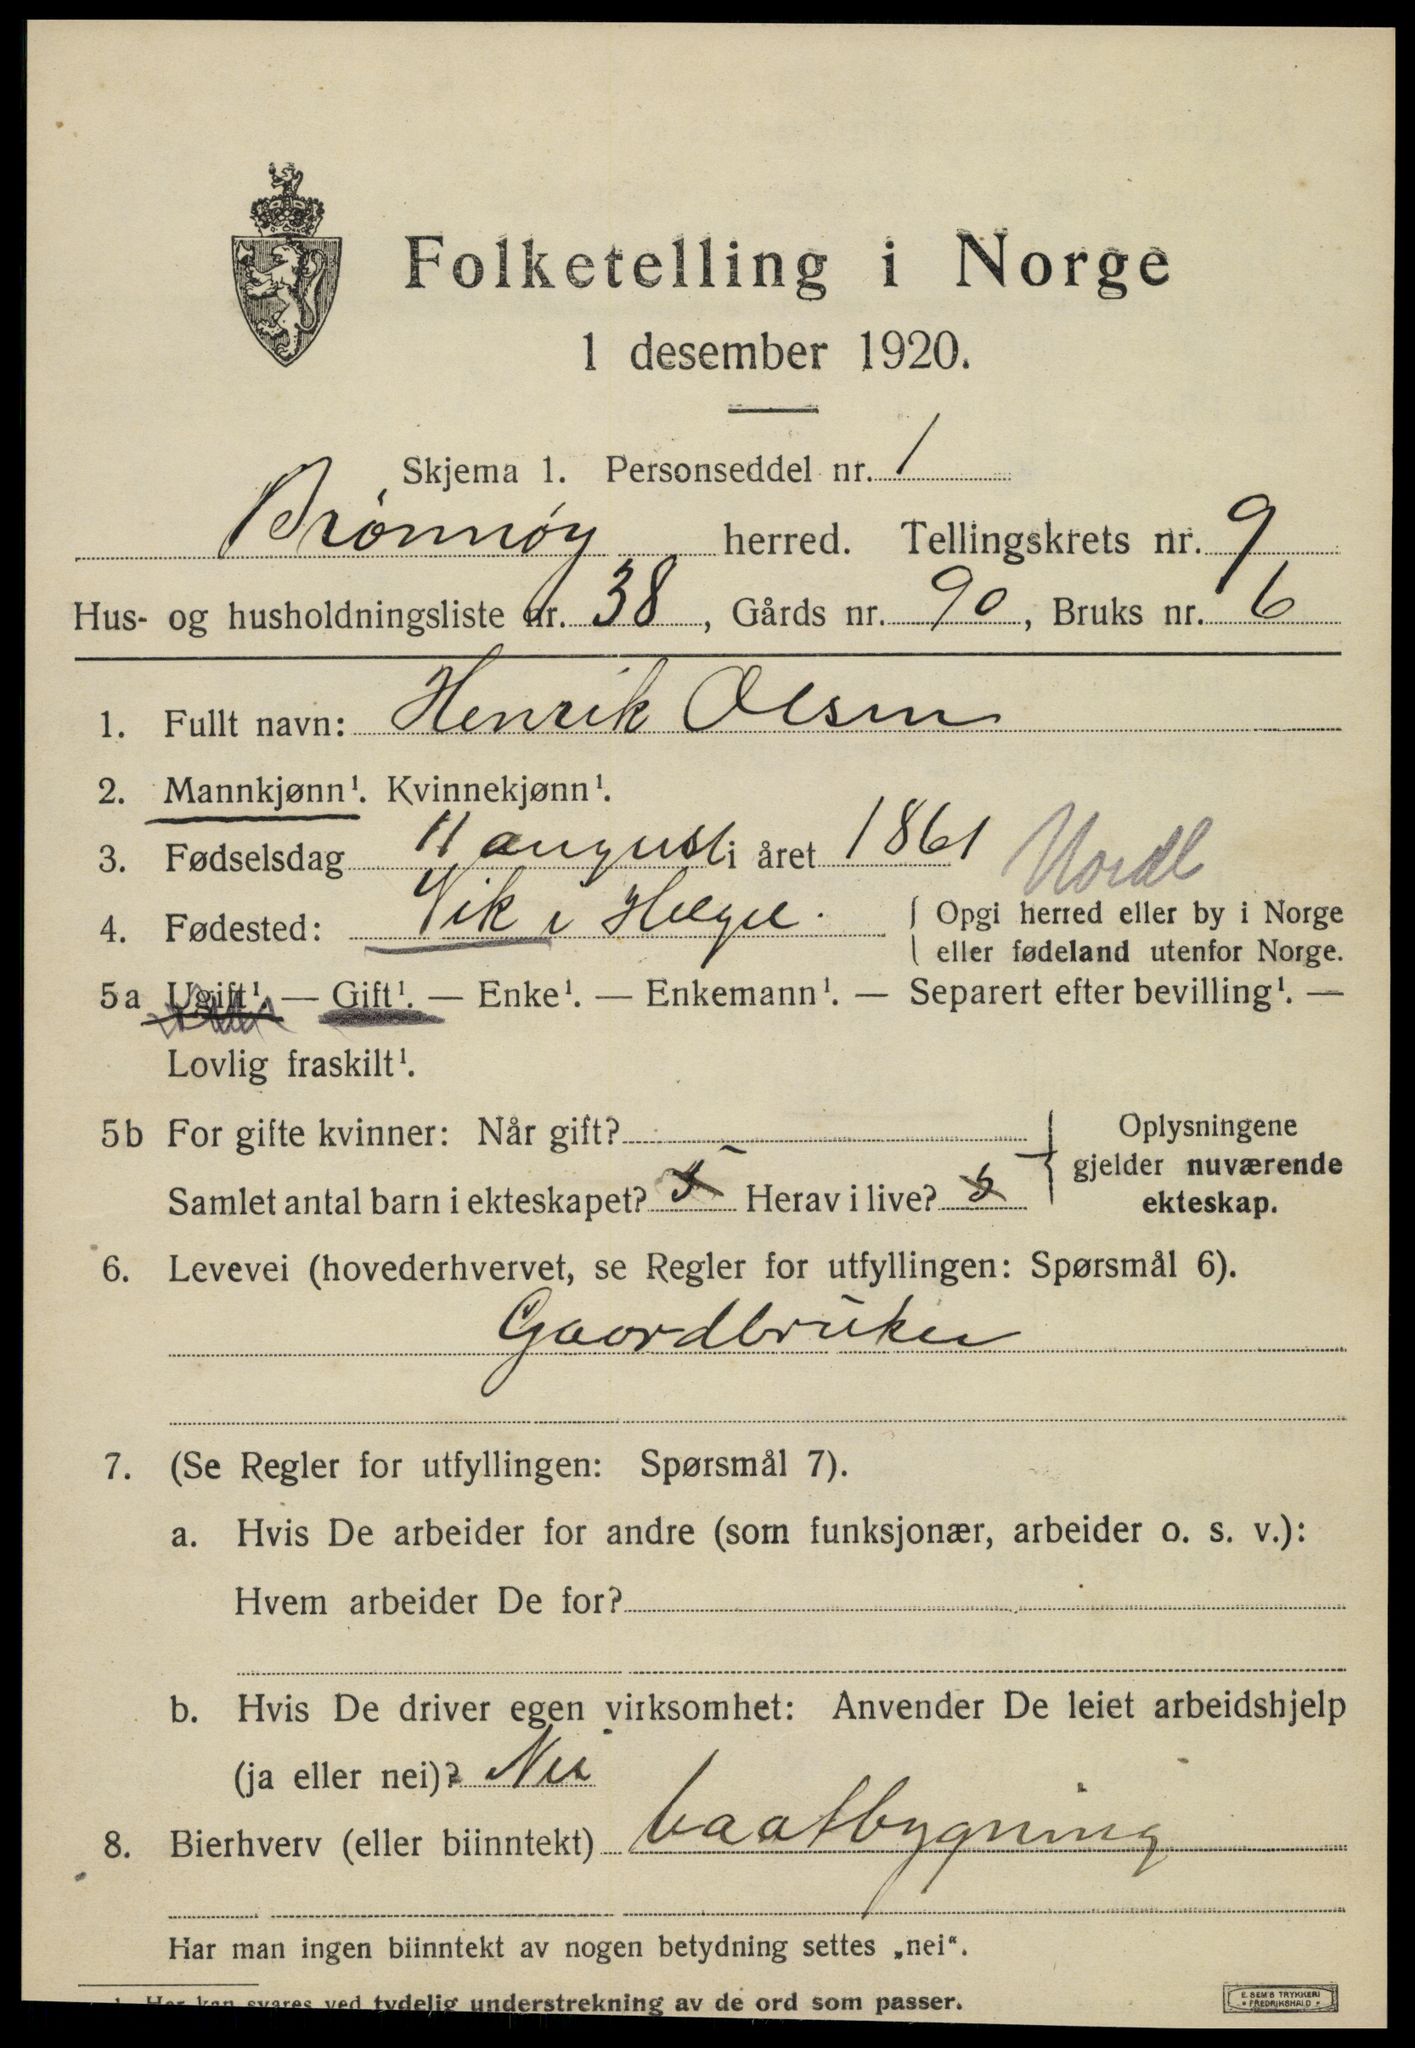 Folketelling i Norge
1 desember 1920.
Skjema 1. Personseddel nr. 1
Brønnøy herred. Tellingskrets nr. 9
Hus- og husholdningsliste nr. 38, Gårds nr. 90, Bruks nr. 6
1. Fullt navn: Henrik Olsen
2. Mannkjønn¹. Kvinnekjønn¹.
3. Fødselsdag 11 august i året 1861 Nordl
4. Fødested: Vik i Helgel. { Opgi herred eller by i Norge
eller fødeland utenfor Norge.
5a Ugift¹. — Gift¹. — Enke¹. — Enkemann¹. — Separert efter bevilling¹. —
Lovlig fraskilt¹.
5b For gifte kvinner: Når gift? } Oplysningene
gjelder nuværende
ekteskap.
Samlet antal barn i ekteskapet? 5 Herav i live? 5
6. Levevei (hovederhvervet, se Regler for utfyllingen: Spørsmål 6).
Gaardbruker
7. (Se Regler for utfyllingen: Spørsmål 7).
a. Hvis De arbeider for andre (som funksjonær, arbeider o. s. v.):
Hvem arbeider De for?
b. Hvis De driver egen virksomhet: Anvender De leiet arbeidshjelp
(ja eller nei)? Nei
8. Bierhverv (eller biinntekt) baatbygning
Har man ingen biinntekt av nogen betydning settes „nei“.
¹ Her kan svares ved tydelig understrekning av de ord som passer.
E. SEM'S TRYKKERI
FREDRIKSHALD